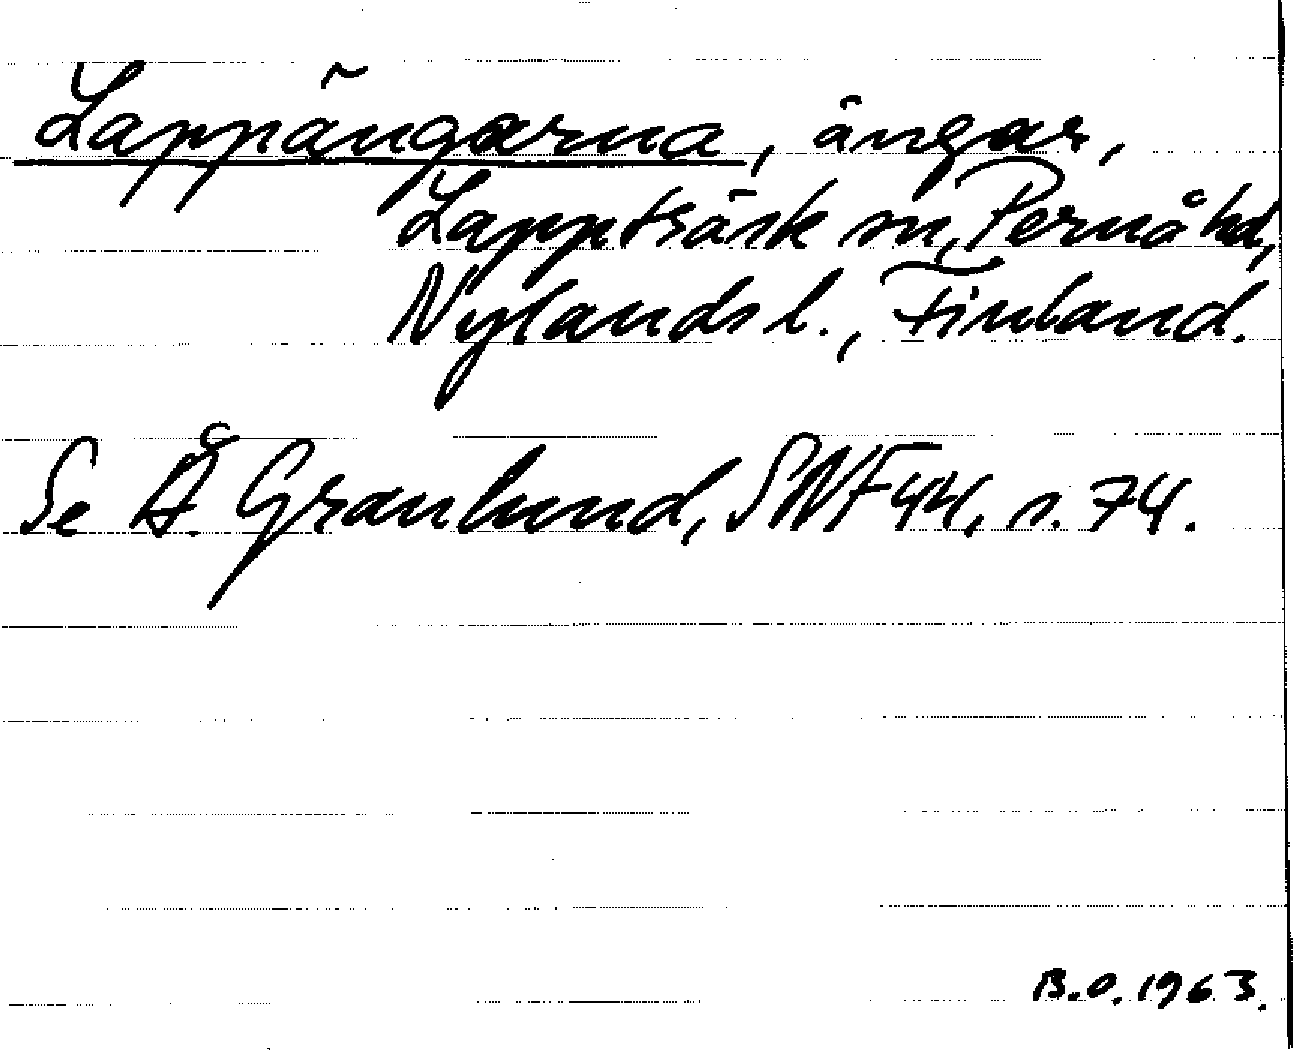 Lappängarna, ängar,
Lappträsk sn, Pernå hd,
Nylands l., Finland.
Se Å. Granlund, SNF 44, s. 74.
B.O. 1963.